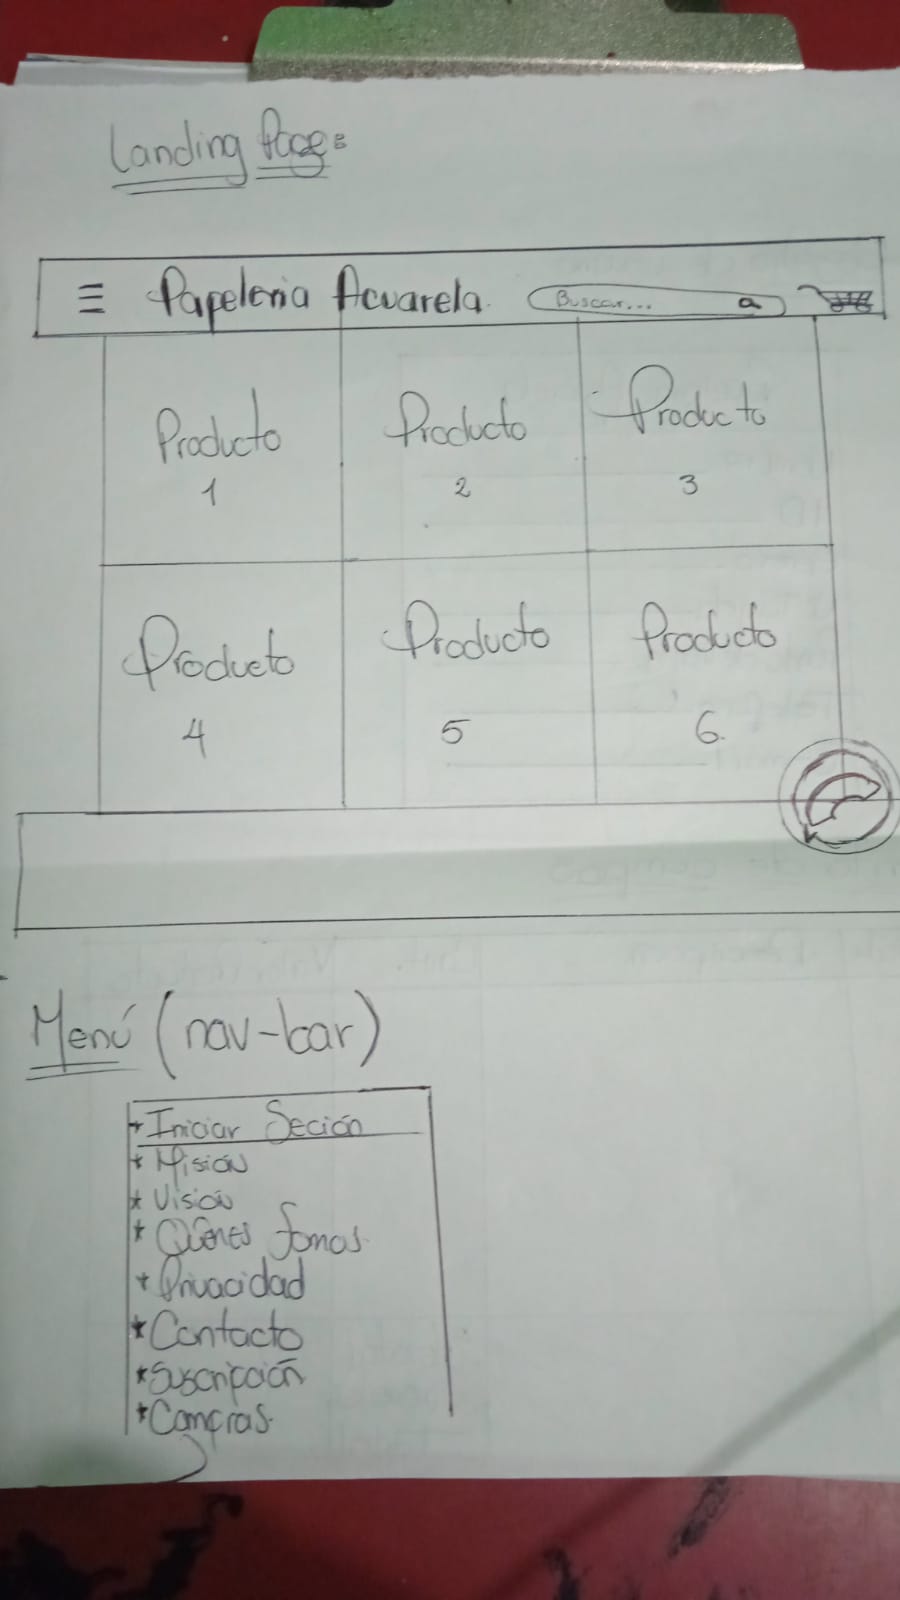 Landing Page:
≡ Papeleria Acuarela. Buscar...
Producto
1
Producto
2
Producto
3
Producto
4
Producto
5
Producto
6.
Menú (nav-bar)
* Iniciar Seción
* Misión
* Visión
* Quienes Somos.
* Privacidad
* Contacto
* Suscripción
* Compras.